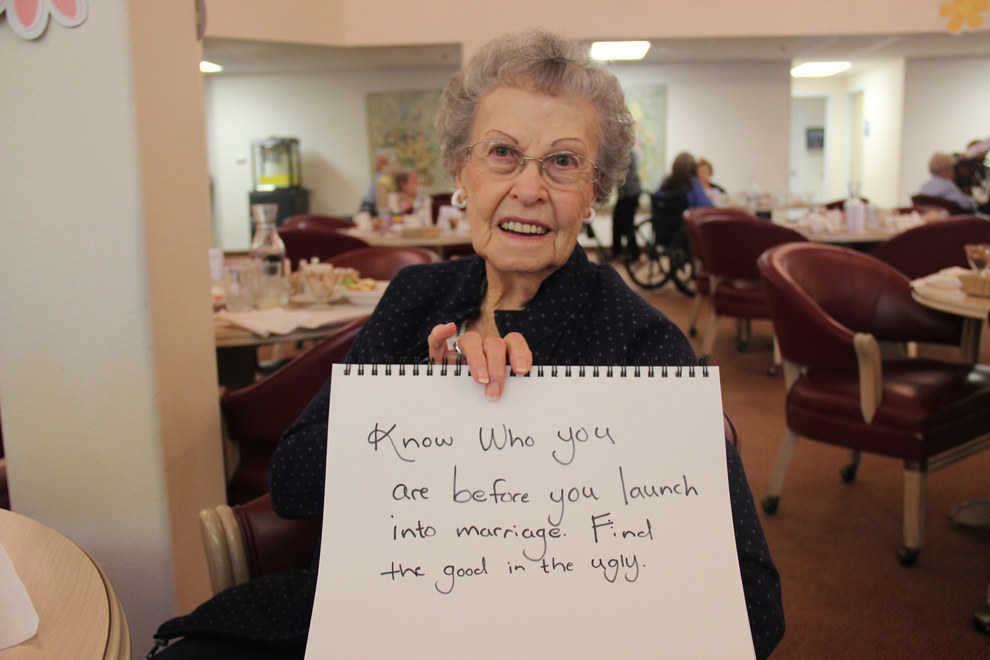 Know Who you
are before you launch
into marriage. Find
the good in the ugly.